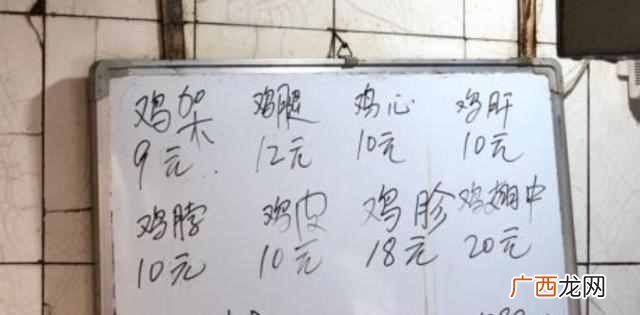 鸡架 鸡腿 鸡心 鸡肝
9元 12元 10元 10元
鸡脖 鸡皮 鸡胗 鸡翅中
10元 10元 18元 20元
广西龙网